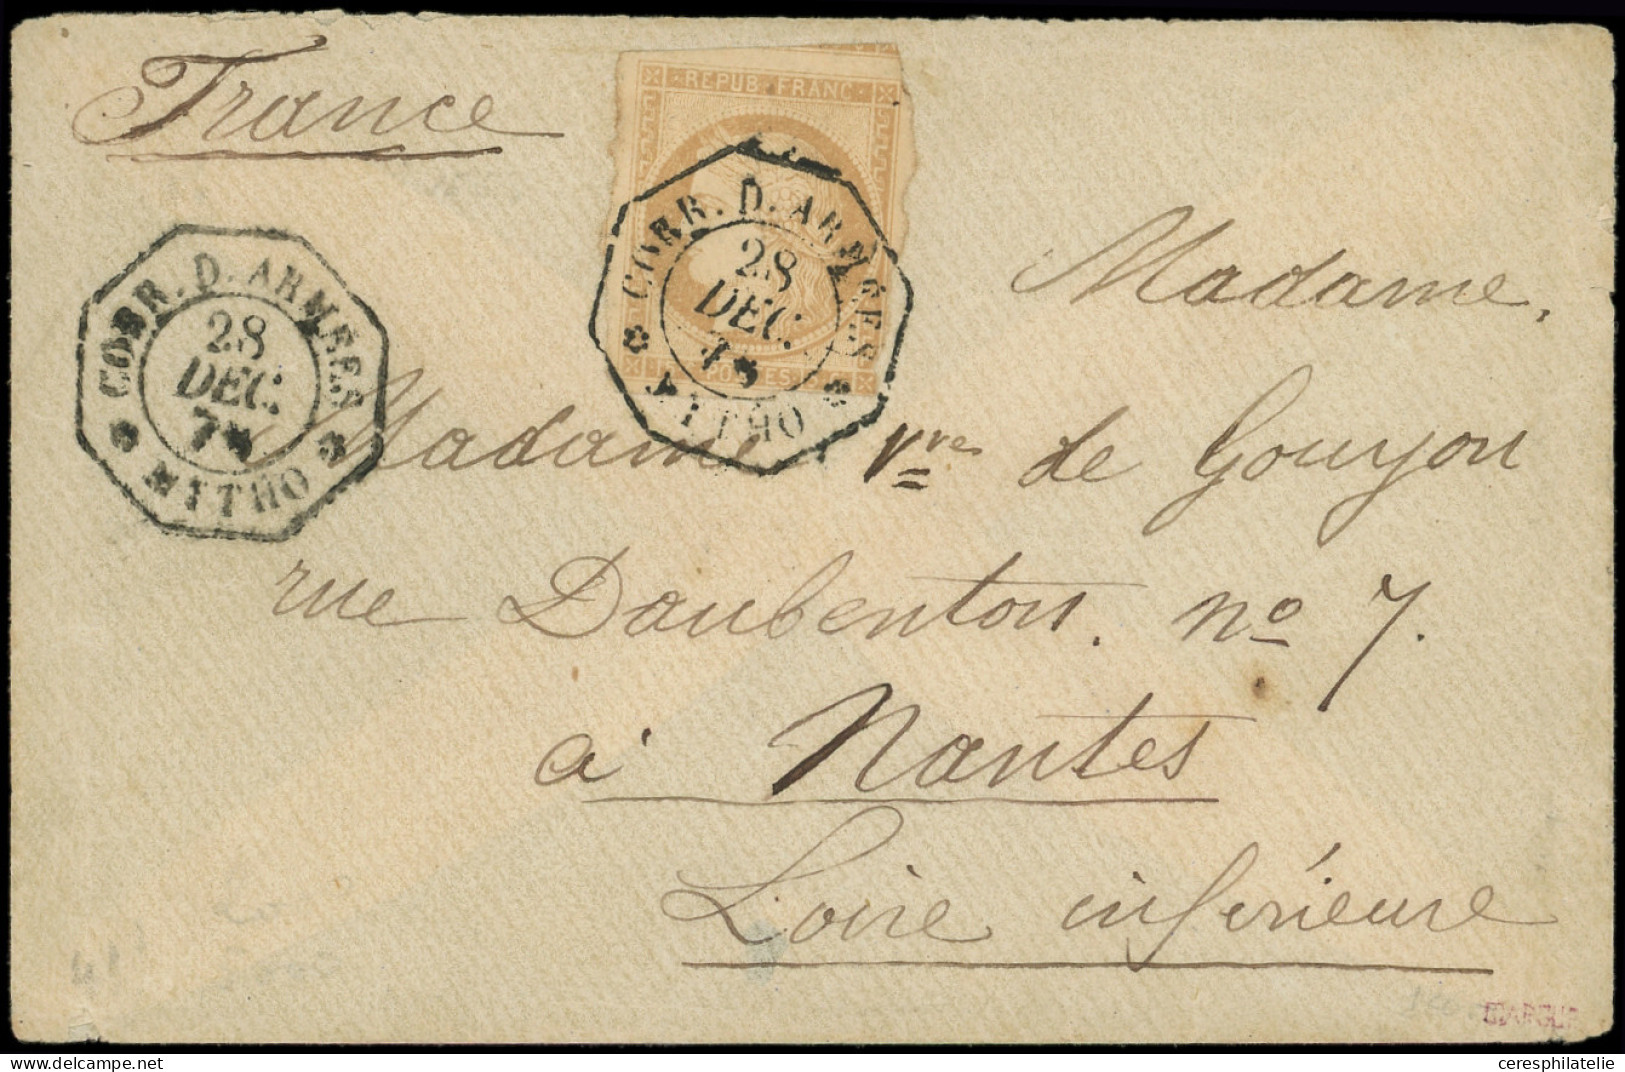 France
REPUB. FRANC
CORR. D. ARMÉES
28
DEC.
MYTHO
POSTES
CORR. D. ARMÉES
28
DEC.
MYTHO
Madame,
Madame Vve de Gouyon
rue Daubenton. no 7.
à Nantes
Loire inférieure
ceresphilatelie